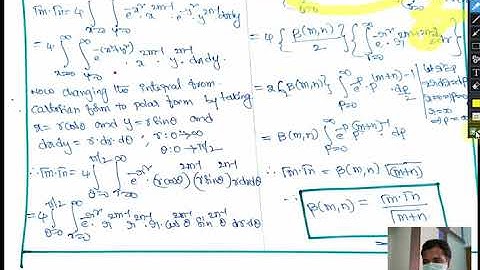 Γm·Γn = 4 ∫_{x=0}^{∞} ∫_{y=0}^{∞} e^{-x²} · x^{2m-1} · e^{-y²} y^{2n-1} dx dy
= 4 ∫_{x=0}^{∞} ∫_{y=0}^{∞} e^{-(x²+y²)} · x^{2m-1} · y^{2n-1} · dx dy
Now changing the integral from
Cartesian form to polar form by taking
x = r cosθ and y = r sinθ
dx dy = r·dr·dθ ; r: 0→∞
θ: 0→π/2
∴ Γm·Γn = 4 ∫_{θ=0}^{π/2} ∫_{r=0}^{∞} e^{-r²} · (r cosθ)^{2m-1} (r sinθ)^{2n-1} r dr dθ
= 4 ∫_{θ=0}^{π/2} ∫_{r=0}^{∞} e^{-r²} · r^{2m-1} · r^{2n-1} · r · cos^{2m-1}θ sin^{2n-1}θ dr dθ
= 4 { β(m,n)/2 } { ∫ e^{-r²} · r^{2m+2n-1} dr }
= 2{ β(m,n) ∫_{p=0}^{∞} e^{-p} · p^{(m+n)-1} · dp/2
let r²=p
2r dr = dp
= β(m,n) ∫_{p=0}^{∞} e^{-p} p^{(m+n)-1} · dp
∴ Γm·Γn = β(m,n) Γ(m+n)
∴ β(m,n) = Γm·Γn / Γm+n